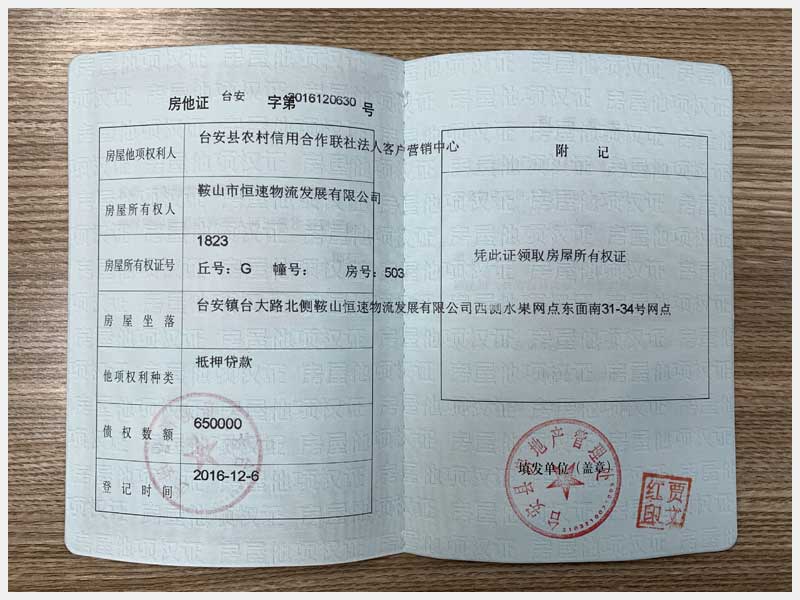 房他证 台安 字第2016120630 号
房屋他项权利人 台安县农村信用合作联社法人客户营销中心
房屋所有权人 鞍山市恒速物流发展有限公司
房屋所有权证号 1823
丘号：G 幢号： 房号：503
房屋坐落 台安镇台大路北侧鞍山恒速物流发展有限公司西侧水果网点东面南31-34号网点
他项权利种类 抵押贷款
债权数额 650000
登记时间 2016-12-6
附 记
凭此证领取房屋所有权证
填发单位（盖章）
台安县房地产管理处
贾文红印